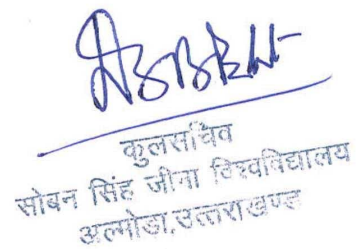 कुलसचिव
सोबन सिंह जीना विश्वविद्यालय
अल्मोडा,उत्तराखण्ड